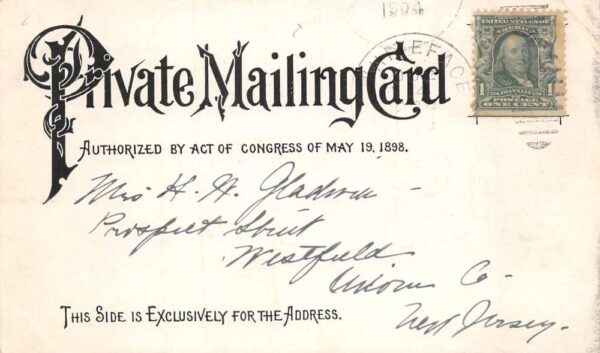 1904
Private Mailing Card
AUTHORIZED BY ACT OF CONGRESS OF MAY 19, 1898.
UNITED STATES OF AMERICA
FRANKLIN
1 1
POSTAGE
ONE CENT
Mrs H. H.
Prospect Street
Westfield
Union Co-
New Jersey.
THIS SIDE IS EXCLUSIVELY FOR THE ADDRESS.